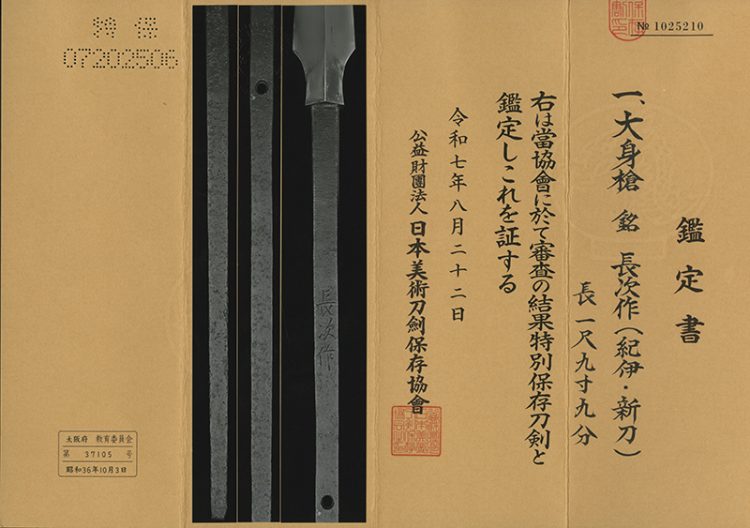 № 1025210
鑑定書
一、大身槍 銘 長次作(紀伊・新刀)
長 一尺九寸九分
右は當協會に於て審査の結果特別保存刀剣と
鑑定しこれを証する
令和七年八月二十二日
公益財團法人 日本美術刀劍保存協會
長次作
特保
07202506
大阪府 教育委員会
第 37105 号
昭和36年10月3日